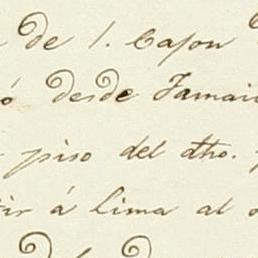 de 1. Cajon
ó desde Jamai
piso del dho.
tir á Lima al